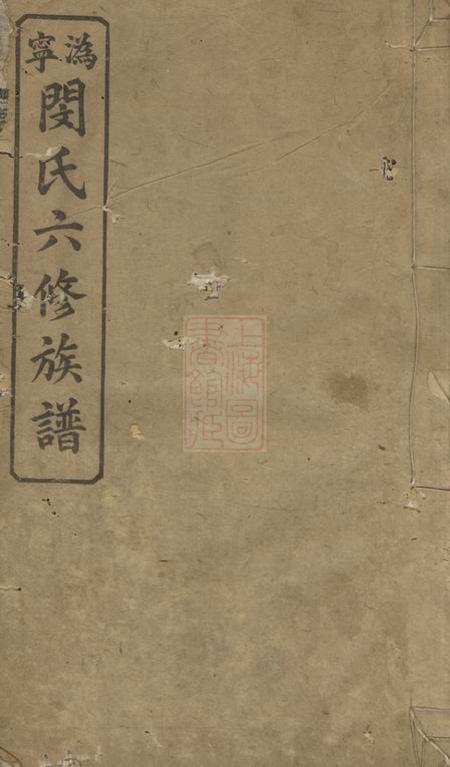 溈寧
閔氏六修族譜
上海圖
書館藏